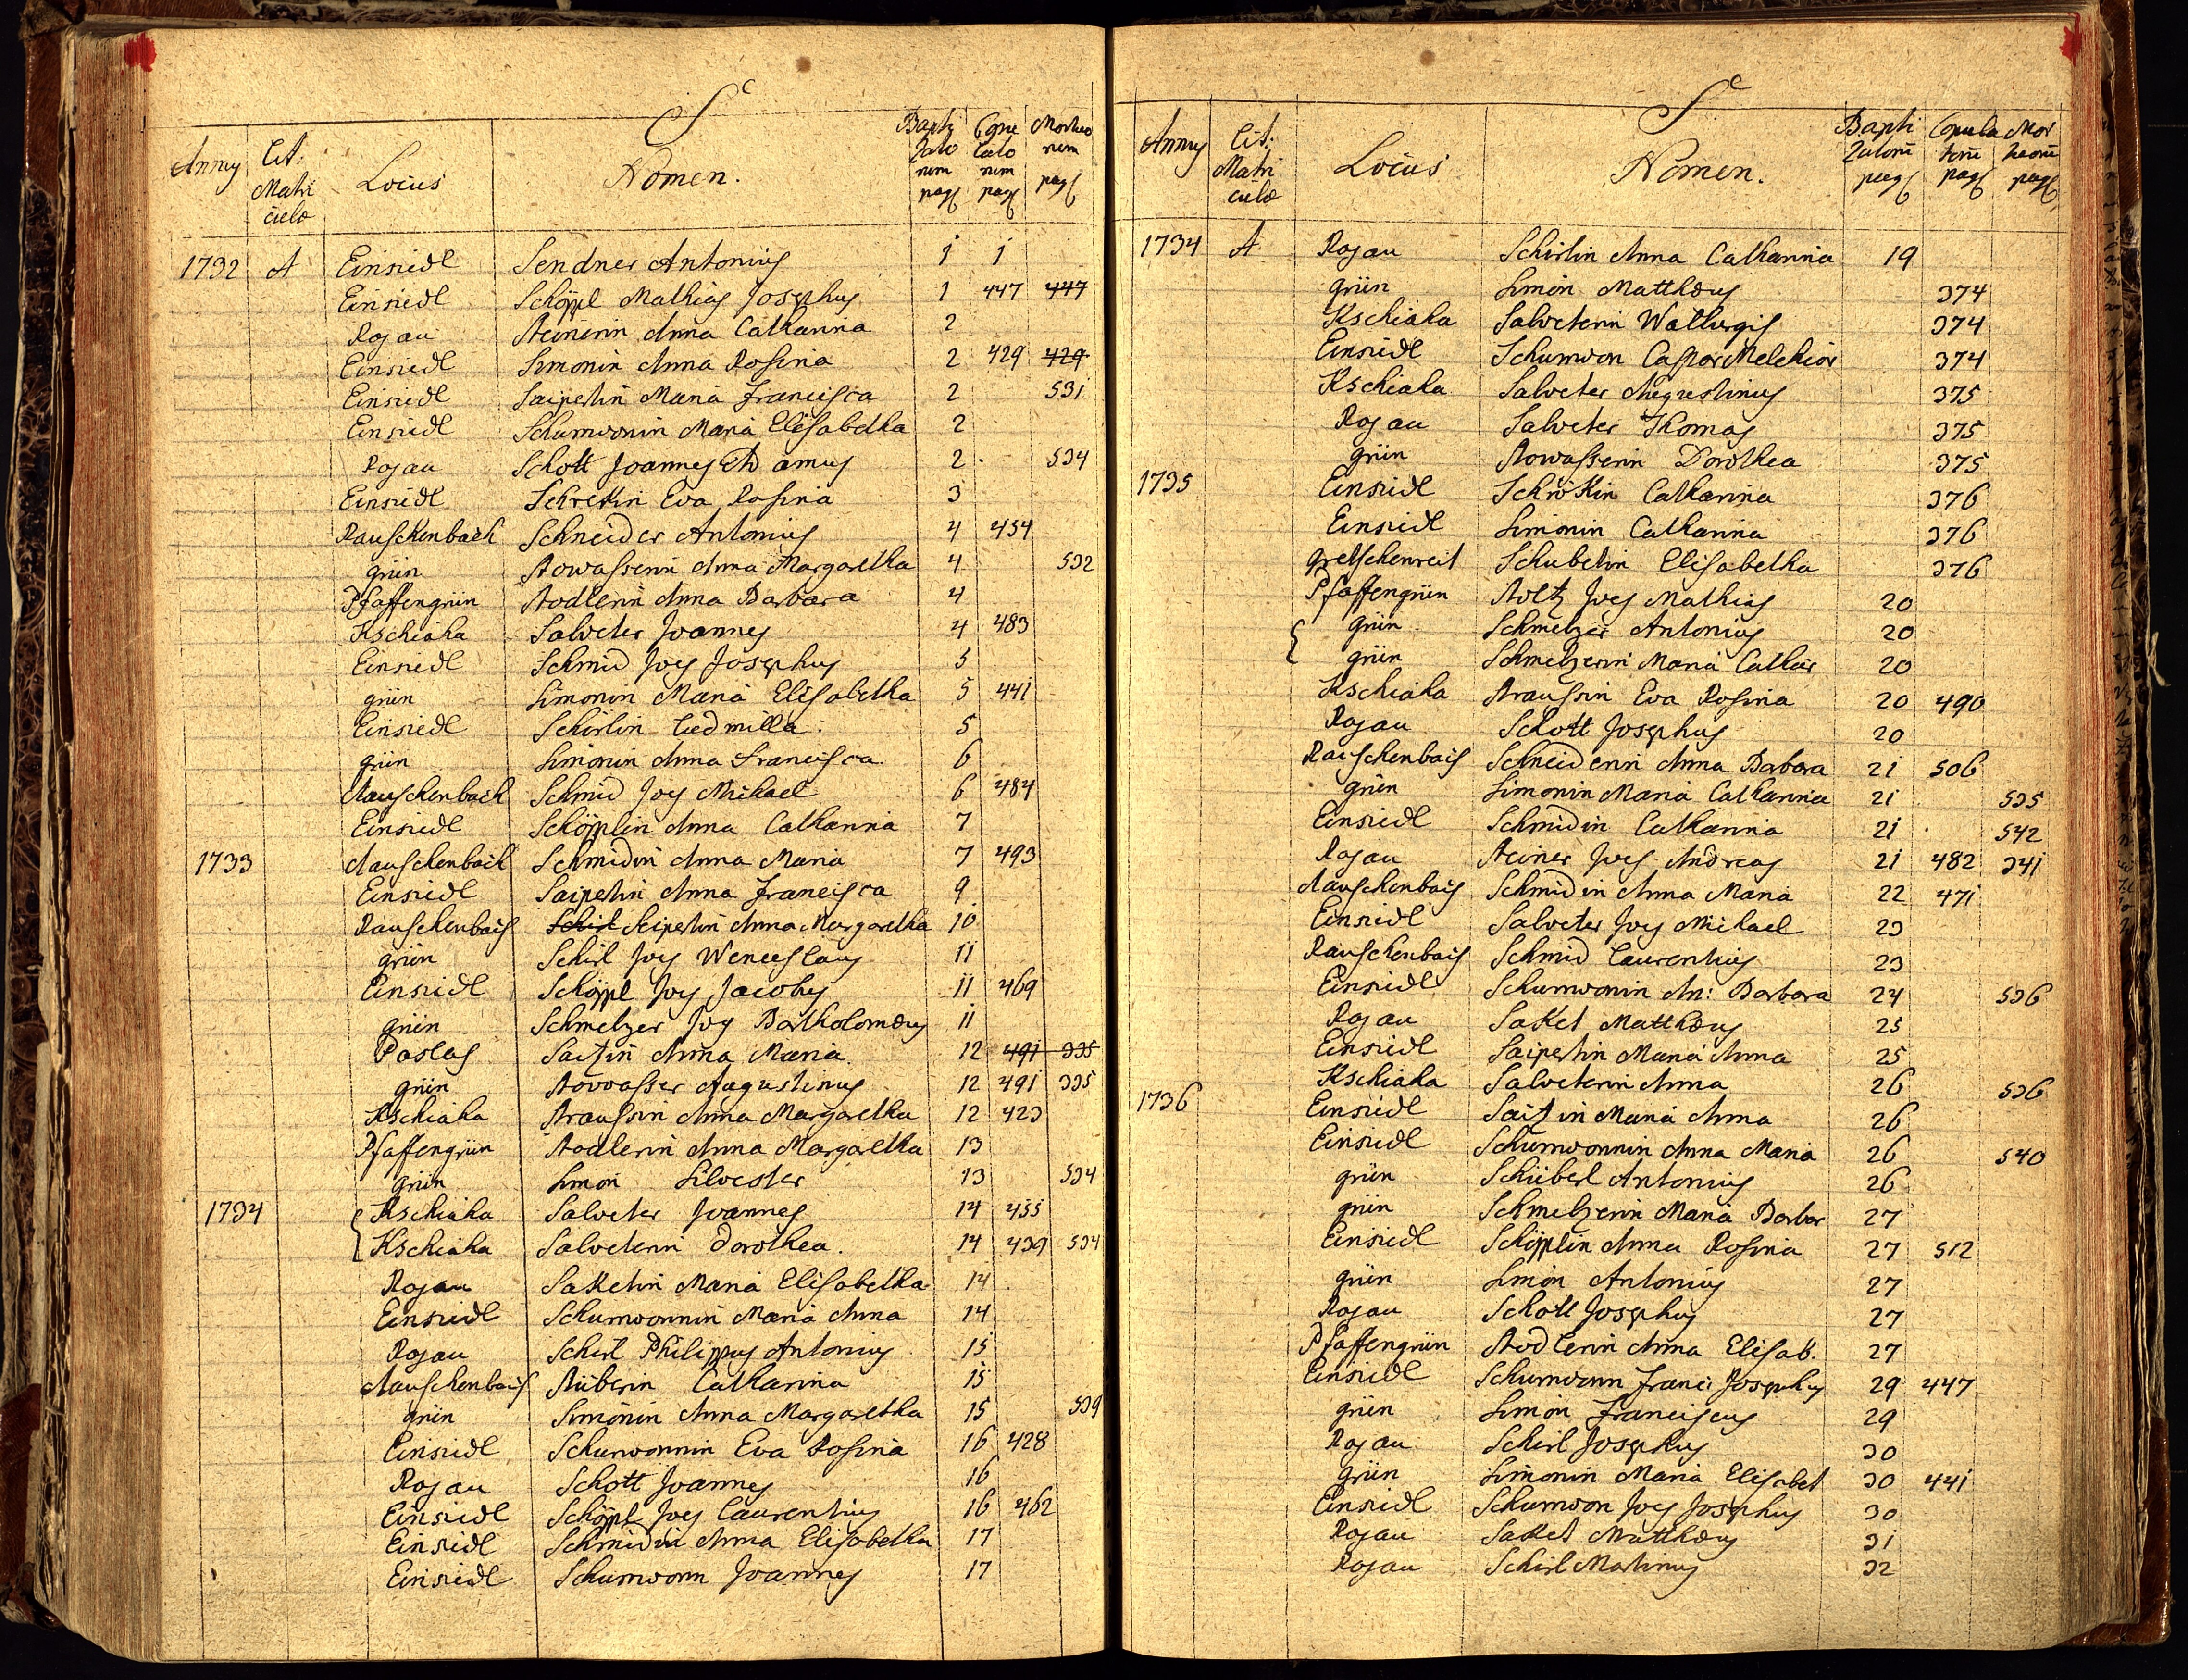 S
Annus Lit: Matriculæ Locus Nomen. Baptizatorum pag: Copulatorum pag: Mortuorum pag:
1732 A Einsiedl Sendner Antonius 1 1
Einsiedl Schöppl Mathias Josephus 1 447 447
Rojau Steinerin Anna Catharina 2
Einsiedl Simonin Anna Rosina 2 429 429
Einsiedl Saipeltin Maria Francisca 2 531
Einsiedl Schumwonin Maria Elisabetha 2
Rojau Schott Joannes Adamus 2 534
Einsiedl Schrekin Eva Rosina 3
Rauschenbach Schneider Antonius 4 454
grün Stowasserin Anna Margaretha 4 532
Pfaffengrün Stodlerin Anna Barbara 4
Kschiaha Salveter Joannes 4 483
Einsiedl Schmid Joes Josephus 5
grün Simonin Maria Elisabetha 5 441
Einsiedl Schirlin Ludmilla 5
grün Simonin Anna Francisca 6
Rauschenbach Schmid Joes Michael 6 484
Einsiedl Schöpplin Anna Catharina 7
1733 Rauschenbach Schmidin Anna Maria 7 493
Einsiedl Saipeltin Anna Francisca 9
Rauschenbach Schirl Seipeltin Anna Margaretha 10
grün Schirl Joes Wenceslaus 11
Einsiedl Schöppl Joes Jacobus 11 469
grün Schmelzer Joes Bartholomæus 11
Paslas Anna Maria 12 491 335
grün Stowasser Augustinus 12 491 335
Kschiaha Straussin Anna Margaretha 12 423
Pfaffengrün Stodlerin Anna Margaretha 13
grün Simon Silvester 13 534
1734 Kschiaha Salveter Joannes 14 455
Kschiaha Salveterin Dorothea. 14 439 534
Rojau Saketin Maria Elisabetha 14
Einsiedl Schumwonnin Maria Anna 14
Rojau Schirl Philippus Antonius 15
Rauschenbach Stüberin Catharina 15
grün Simonin Anna Margaretha 15 539
Einsiedl Schumwonnin Eva Rosina 16 428
Rojau Schott Joannes 16
Einsiedl Schöppl Joes Laurentius 16 462
Einsiedl Schmidin Anna Elisabetha 17
Einsiedl Schumwonn Joannes 17
S
Annus Lit: Matriculæ Locus Nomen. Baptizatorum pag: Copulatorum pag: Mortuorum pag:
1734 A Rojau Schirlin Anna Catharina 19
grün Simon Matthæus 374
Kschiaha Salveterin Walburgis 374
Einsiedl Schumwon Caspar Melchior 374
Kschiaha Salveter Augustinus 375
Rojau Salveter Thomas 375
grün Stowasserin Dorothea 375
1735 Einsiedl Schrökin Catharina 376
Einsiedl Simonin Catharina 376
gretschenreit Schubetin Elisabetha 376
Pfaffengrün Stoltz Joes Mathias 20
grün Schmelzer Antonius 20
grün Schmelzerin Maria Cathar 20
Kschiaha Straussin Eva Rosina 20 490
Rojau Schott Josephus 20
Rauschenbach Schneiderin Anna Barbara 21 506
grün Simonin Maria Catharina 21 535
Einsiedl Schmidin Catharina 21 542
Rojau Steiner Joes Andreas 21 482 341
Rauschenbach Schmidin Anna Maria 22 471
Einsiedl Salveter Joes Michael 23
Rauschenbach Schmid Laurentius 23
Einsiedl Schumwonin An: Barbara 24 536
Rojau Saket Matthæus 25
Einsiedl Saipeltin Maria Anna 25
Kschiaha Salveterin Anna 26 536
1736 Einsiedl Maria Anna 26
Einsiedl Schumwonnin Anna Maria 26 540
grün Schüberl Antonius 26
grün Schmelzerin Maria Barbar 27
Einsiedl Schöpplin Anna Rosina 27 512
grün Simon Antonius 27
Rojau Schott Josephus 27
Pfaffengrün Stodlerin Anna Elisab. 27
Einsiedl Schumwonn Franc: Josephus 29 447
grün Simon Franciscus 29
Rojau Schirl Josephus 30
grün Simonin Maria Elisabet 30 441
Einsiedl Schumwon Joes Josephus 30
Rojau Saket Matthæus 31
Rojau Schirl Martinus 32